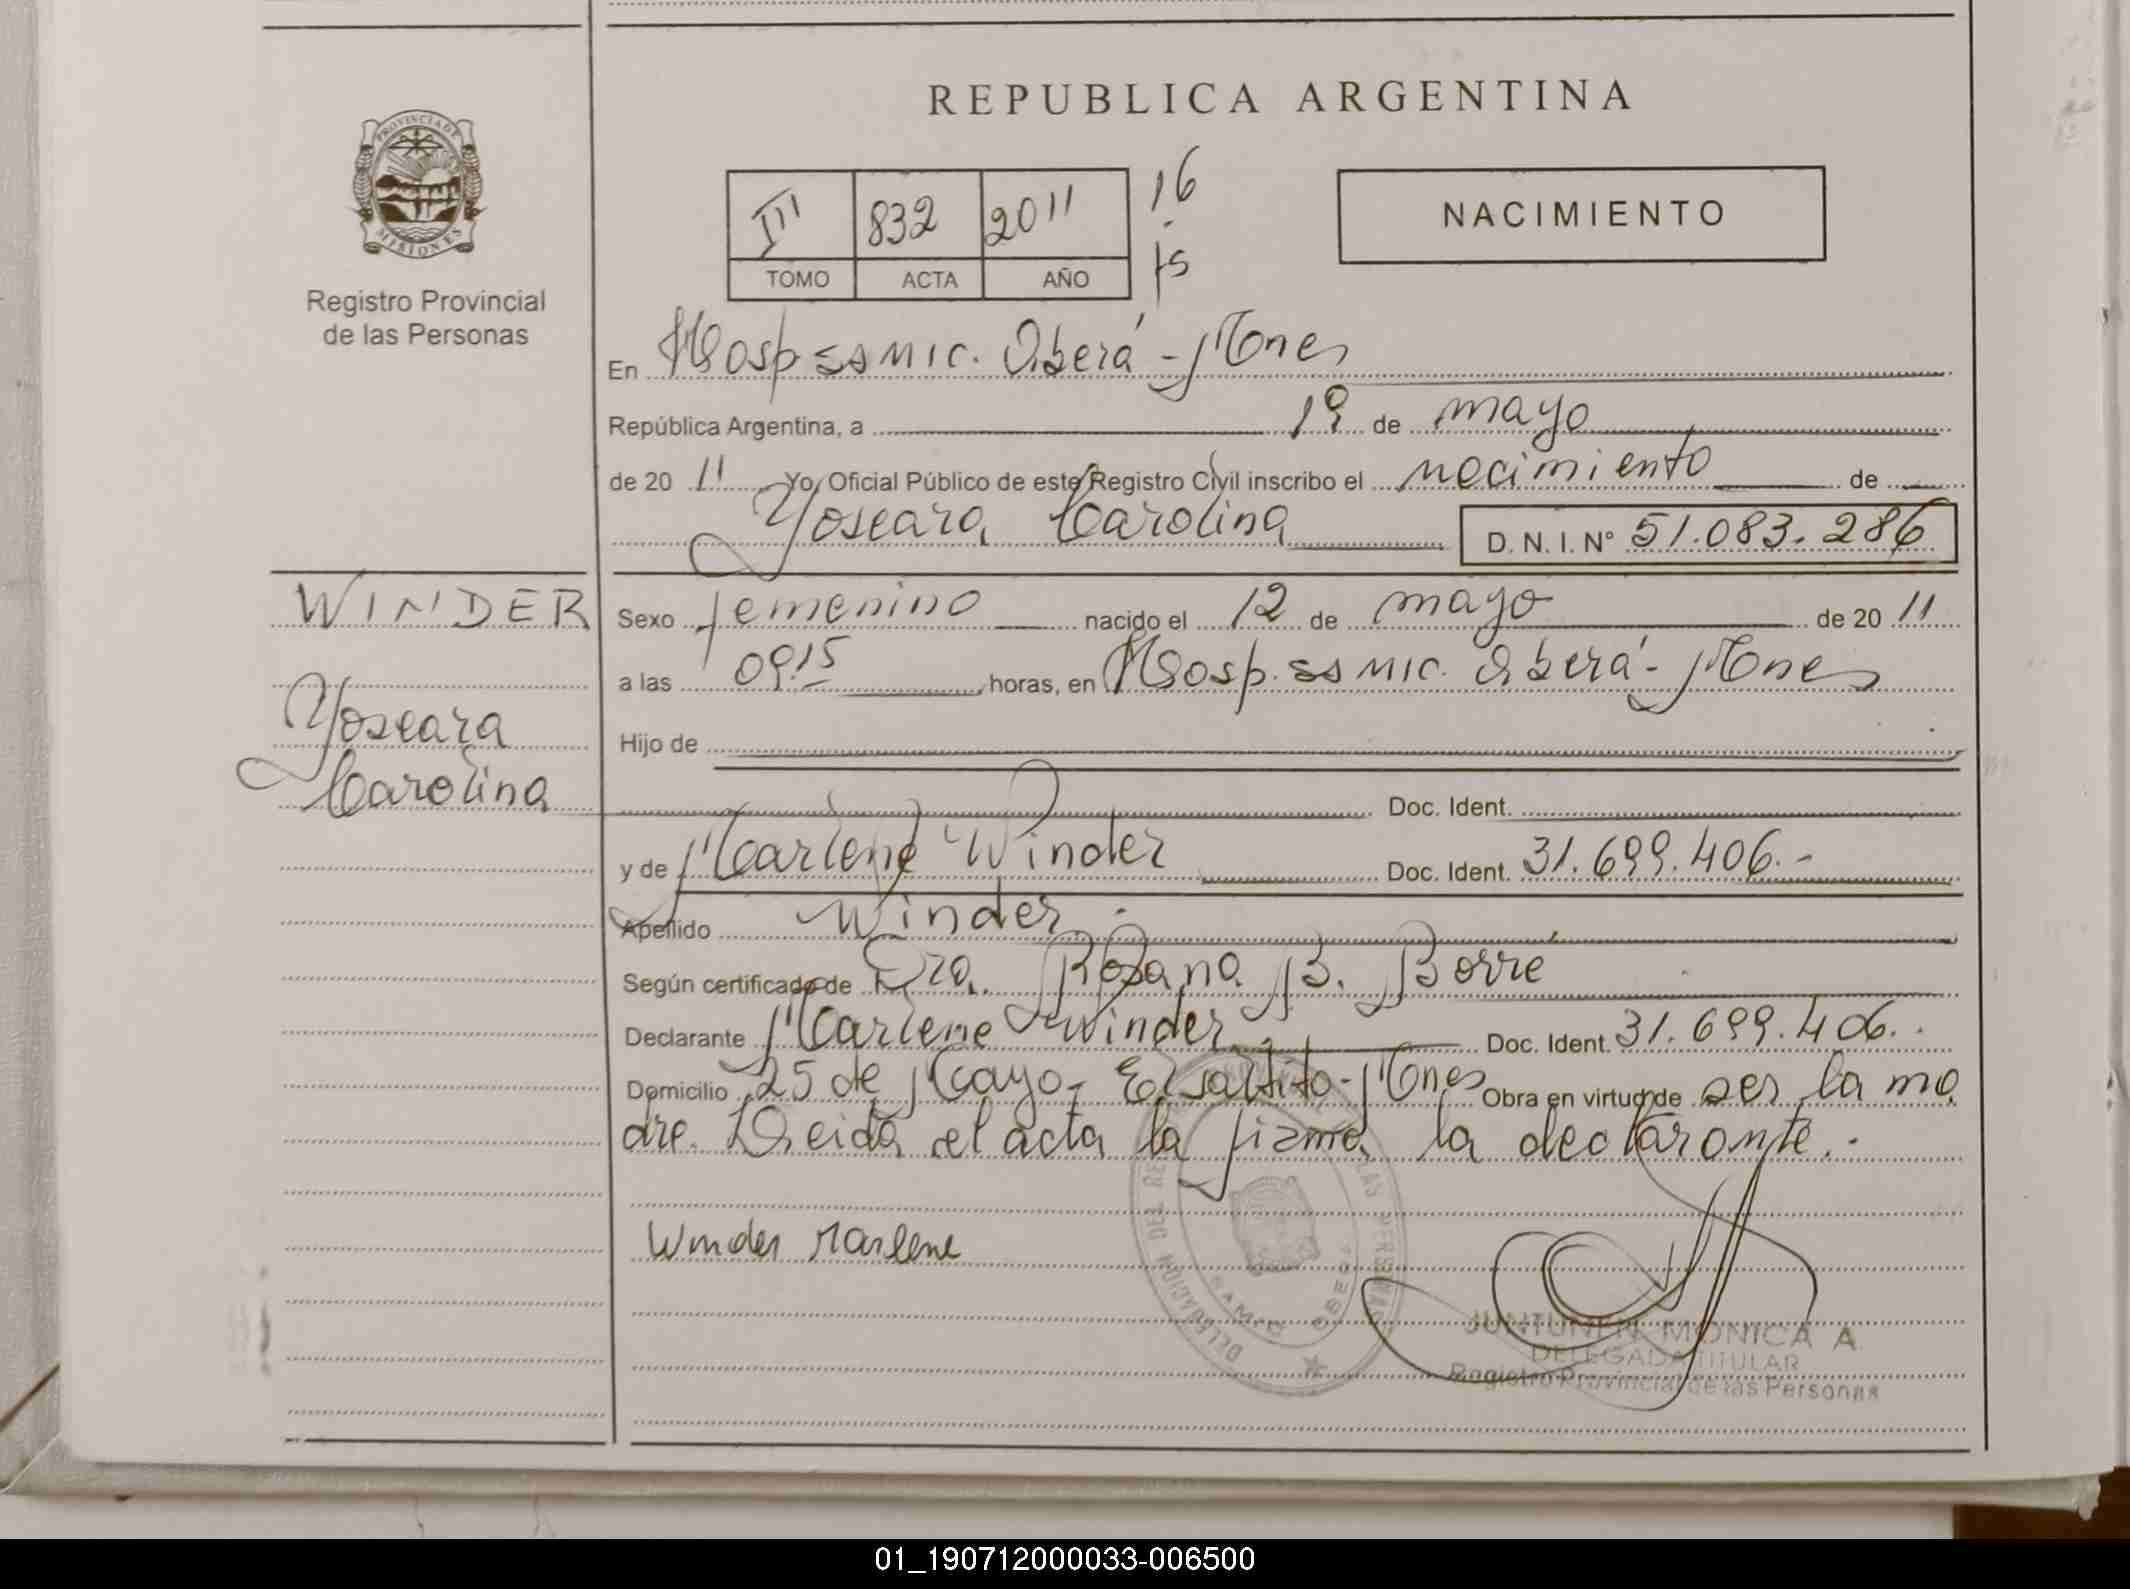 REPUBLICA ARGENTINA
PROVINCIA DE
MISIONES
Registro Provincial
de las Personas
III 832 2011
TOMO ACTA AÑO
16
15
NACIMIENTO
En Hosp SSMIC. Oberá - Mnes
República Argentina, a 19 de mayo
de 20 11 Yo, Oficial Público de este Registro Civil inscribo el nacimiento de
Yoseara Carolina D. N. I. N° 51.083.286
WINDER
Yoseara
Carolina
Sexo femenino nacido el 12 de mayo de 20 11
a las 09.15 horas, en Hosp. SSMIC. Oberá - Mnes
Hijo de
Doc. Ident.
y de Marlene Winder Doc. Ident. 31.699.406.-
Apellido Winder.
Según certificado de Dra. Rosana B. Borré
Declarante Marlene Winder Doc. Ident. 31.699.406.
Domicilio 25 de Mayo - El Saltito - Mnes Obra en virtud de ser la ma
dre. Leida el acta la firma la declarante.
Winder Marlene
DELEGACION DEL LAS PERSONAS
JUNTUNEN MONICA A.
DELEGADA TITULAR
Registro Provincial de las Personas
01_190712000033-006500